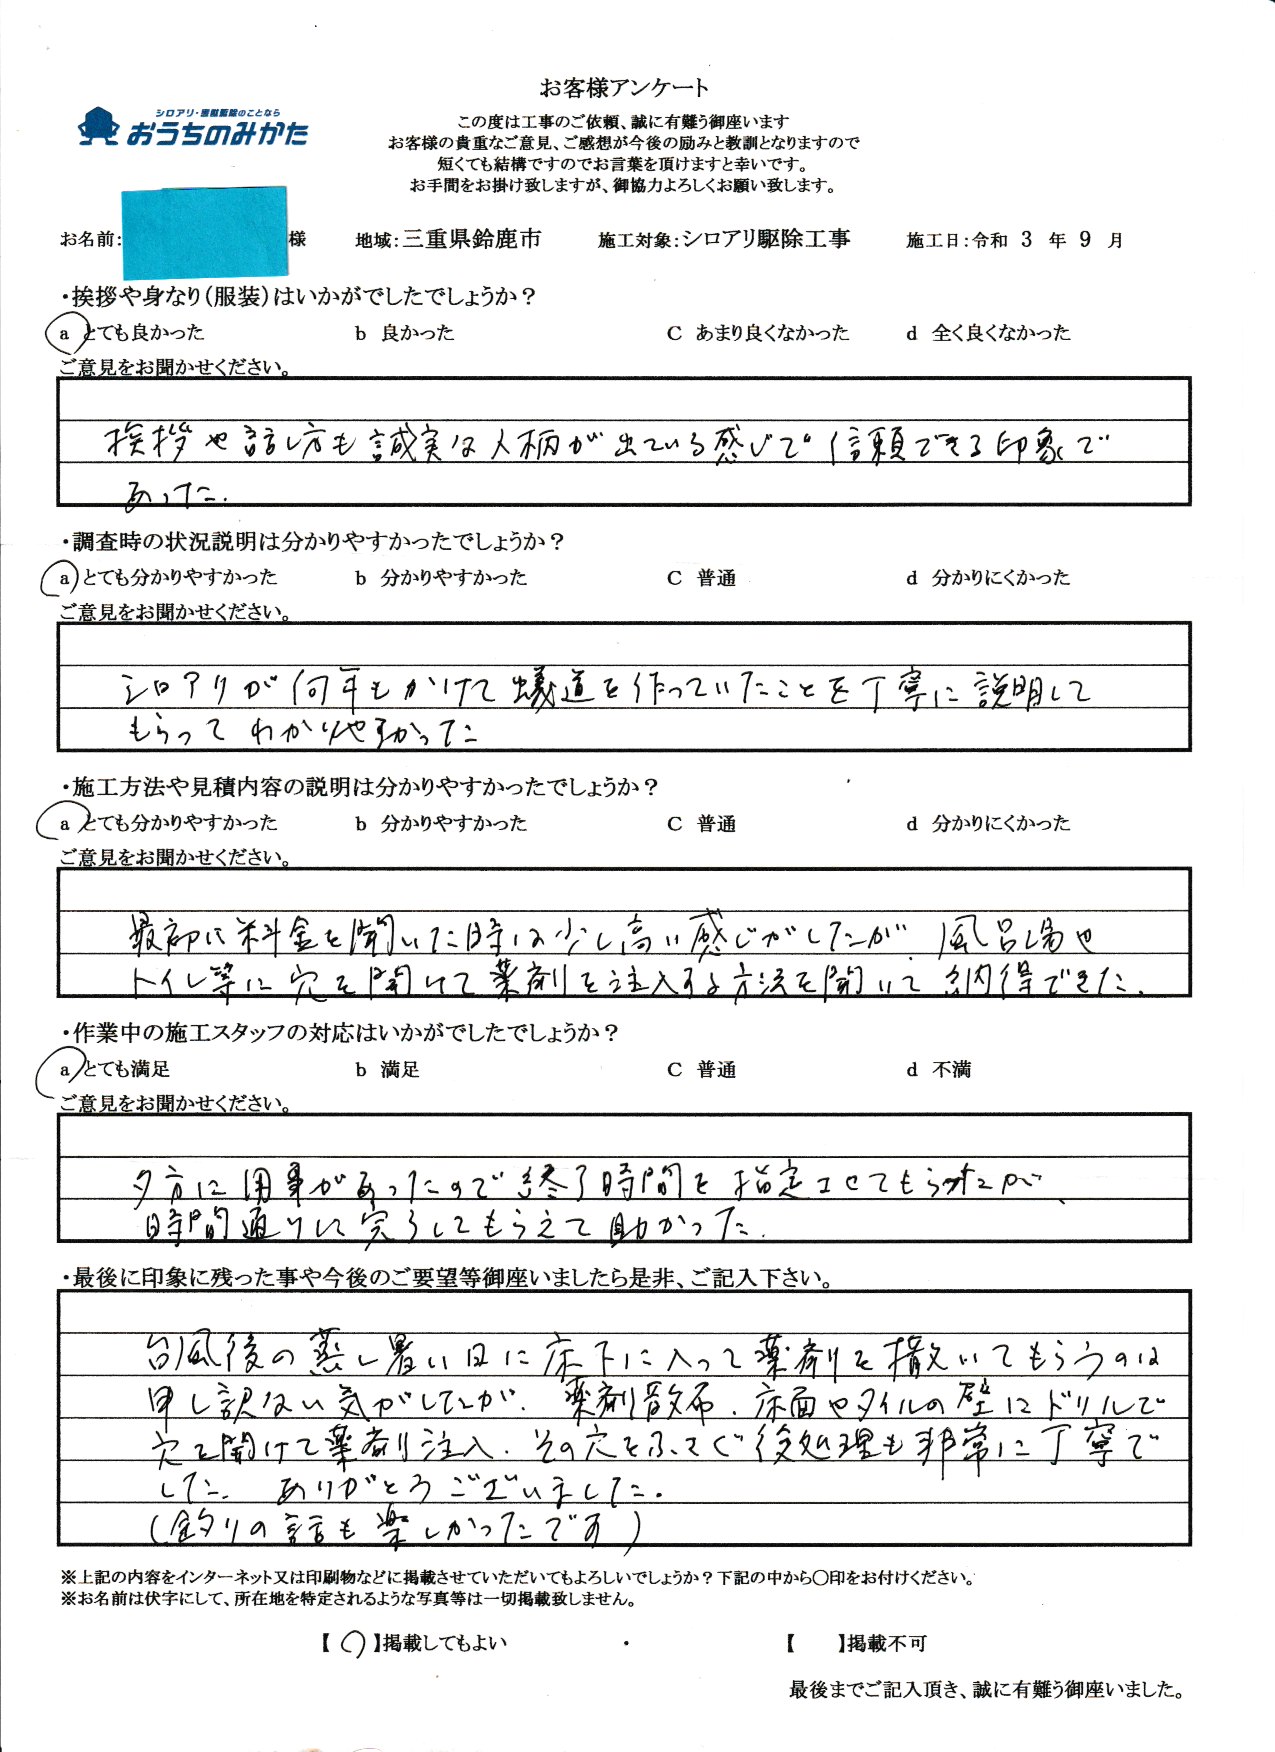 お客様アンケート
シロアリ・害獣駆除のことなら
おうちのみかた
この度は工事のご依頼、誠に有難う御座います
お客様の貴重なご意見、ご感想が今後の励みと教訓となりますので
短くても結構ですのでお言葉を頂けますと幸いです。
お手間をお掛け致しますが、御協力よろしくお願い致します。
お名前: 様 地域:三重県鈴鹿市 施工対象:シロアリ駆除工事 施工日:令和 3 年 9 月
・挨拶や身なり(服装)はいかがでしたでしょうか?
a とても良かった b 良かった C あまり良くなかった d 全く良くなかった
ご意見をお聞かせください。
挨拶や話し方も誠実な人柄が出ている感じで信頼できる印象で
あった.
・調査時の状況説明は分かりやすかったでしょうか?
a とても分かりやすかった b 分かりやすかった C 普通 d 分かりにくかった
ご意見をお聞かせください。
シロアリが何年もかけて蟻道を作っていたことを丁寧に説明して
もらってわかりやすかった
・施工方法や見積内容の説明は分かりやすかったでしょうか?
a とても分かりやすかった b 分かりやすかった C 普通 d 分かりにくかった
ご意見をお聞かせください。
最初に料金を聞いた時は少し高い感じがしたが 風呂場や
トイレ等に穴を開けて薬剤を注入する方法を聞いて納得できた.
・作業中の施工スタッフの対応はいかがでしたでしょうか?
a とても満足 b 満足 C 普通 d 不満
ご意見をお聞かせください。
夕方に用事があったので終了時間を指定させてもらったが、
時間通りに完了してもらえて助かった.
・最後に印象に残った事や今後のご要望等御座いましたら是非、ご記入下さい。
台風後の蒸し暑い日に床下に入って薬剤を撒いてもらうのは
申し訳ない気がしたが、薬剤散布、床面やタイルの壁にドリルで
穴を開けて薬剤注入、その穴をふさぐ後処理も非常に丁寧で
した. ありがとうございました.
(釣りの話も楽しかったです)
※上記の内容をインターネット又は印刷物などに掲載させていただいてもよろしいでしょうか?下記の中から〇印をお付けください。
※お名前は伏字にして、所在地を特定されるような写真等は一切掲載致しません。
【 ○ 】掲載してもよい ・ 【 】掲載不可
最後までご記入頂き、誠に有難う御座いました。